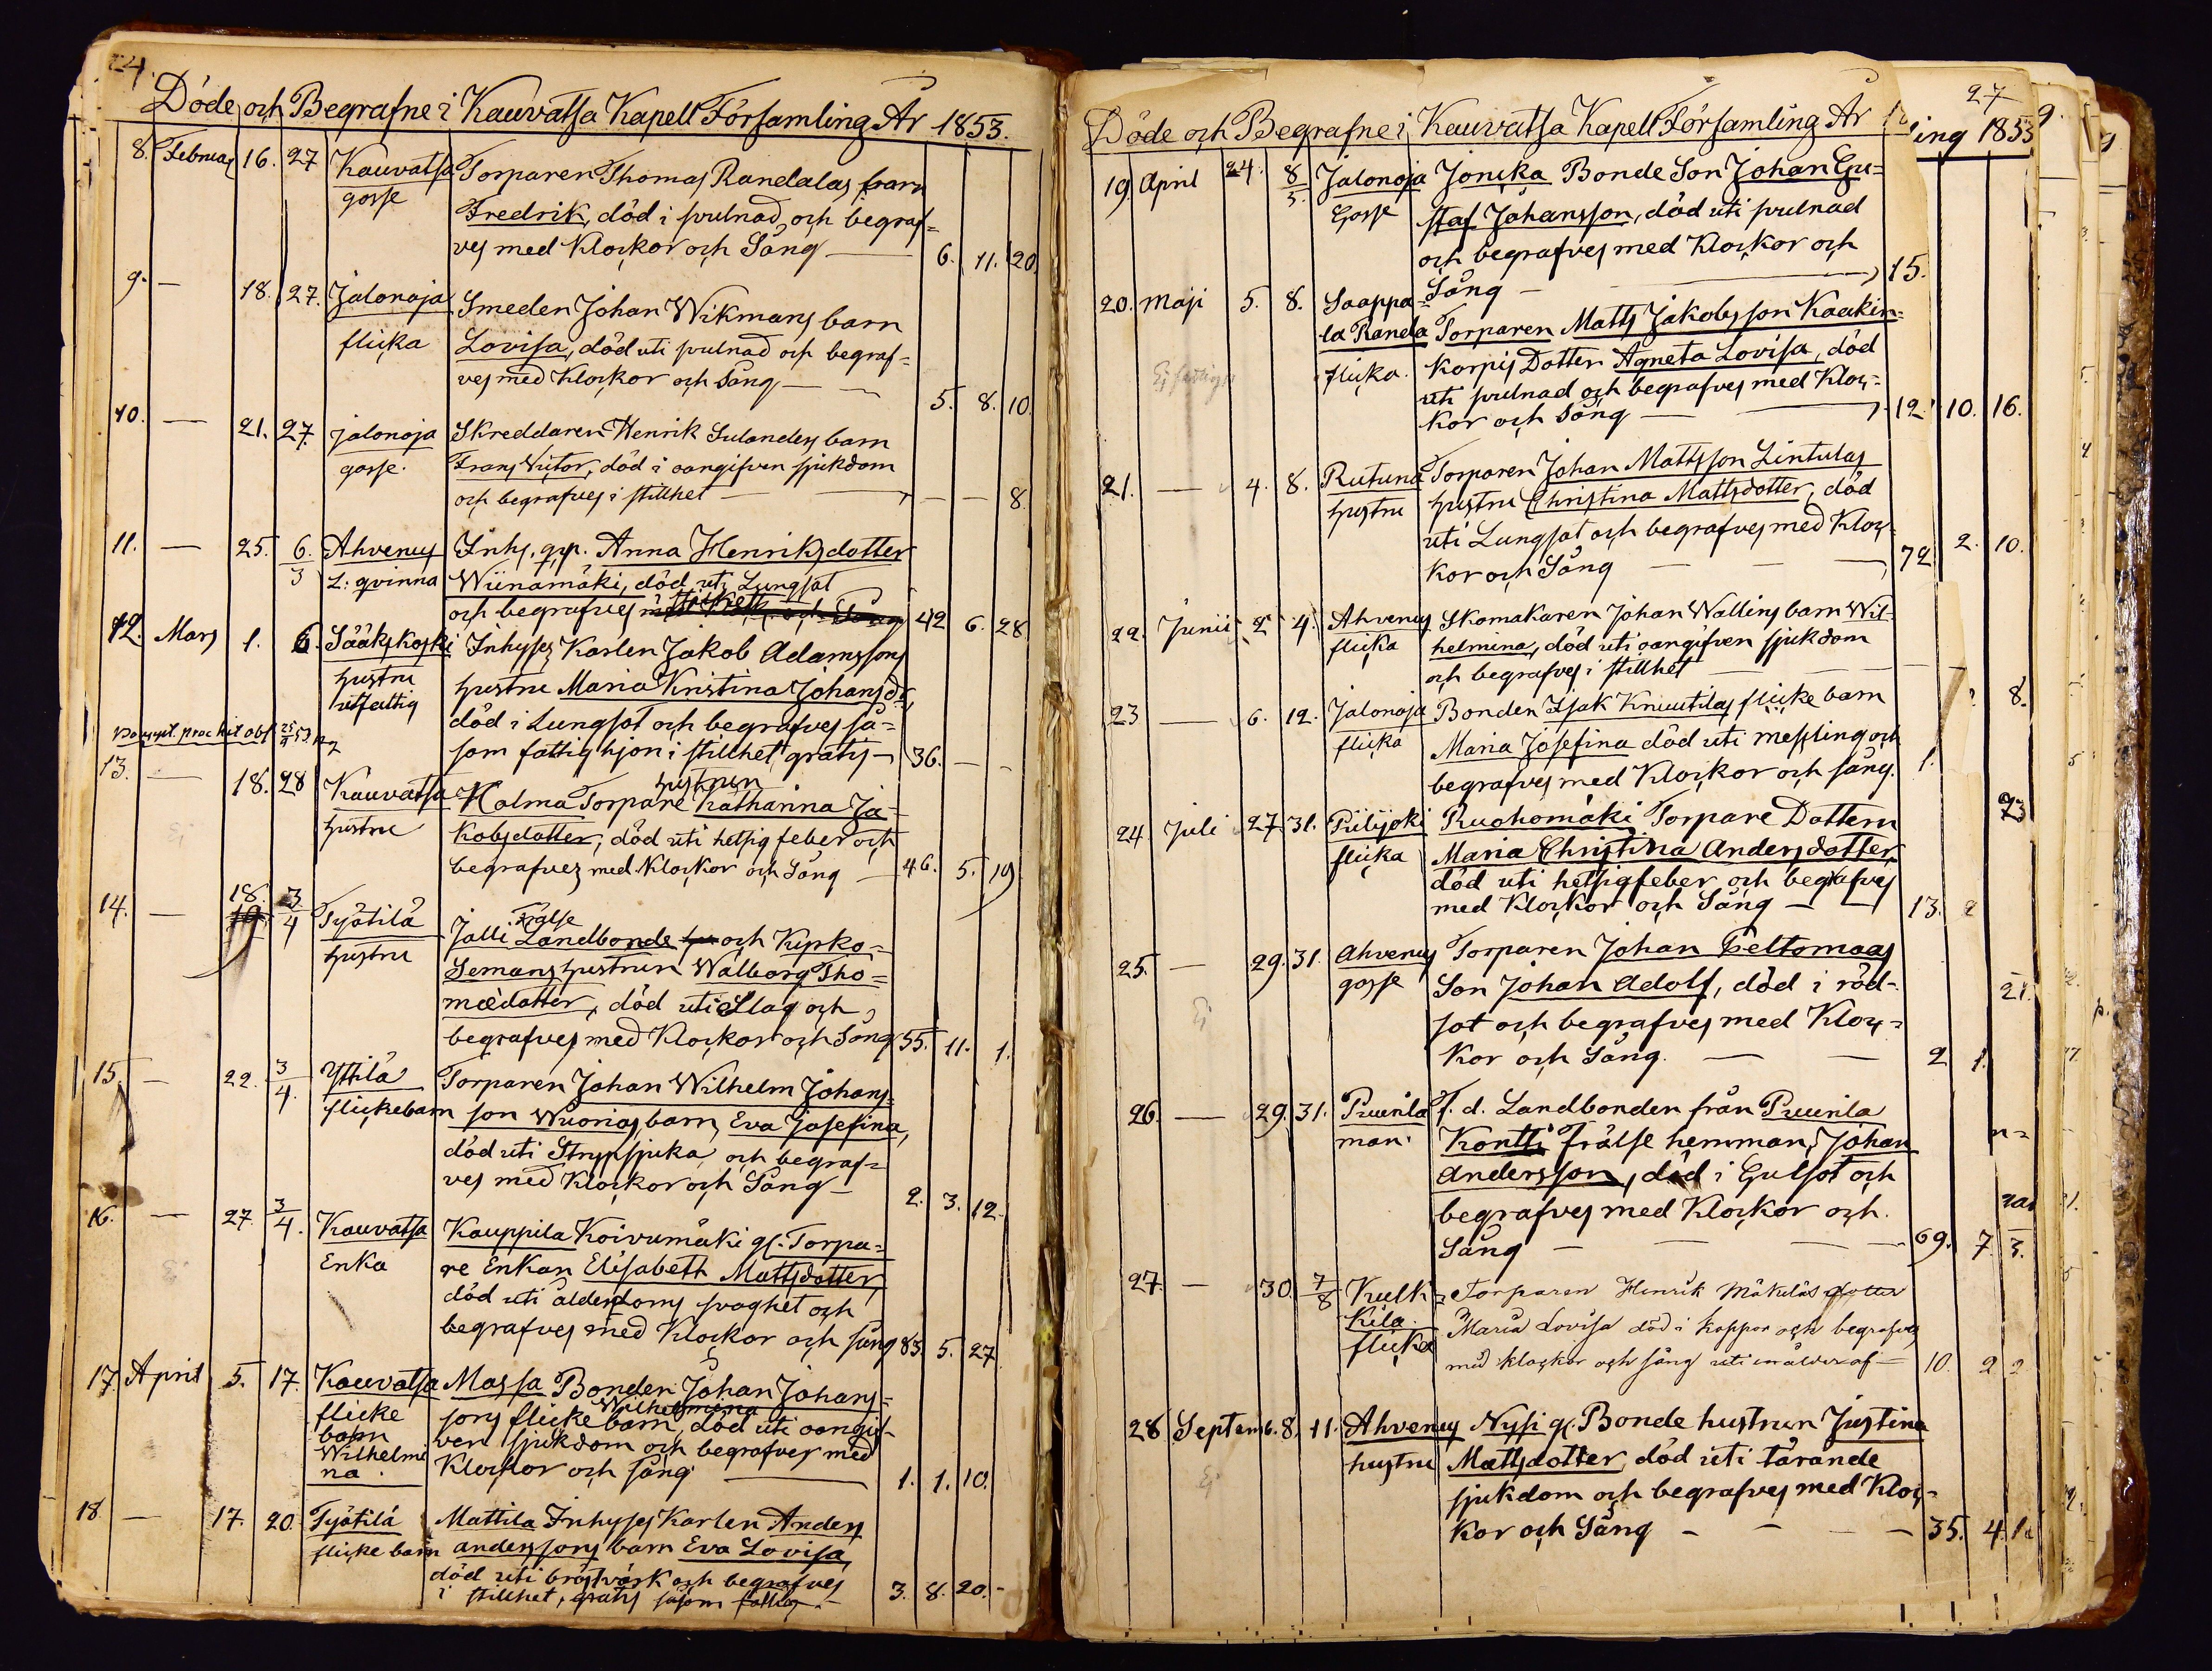 24.
Döde och Begrafne i Kauvatsa Kapell Församling År 1853.
8. Februar 16. 27 Kauvatsa Torparen Thomas Randalas barn
gosse Fredrik, död i svulnad och begraf=
ves med Klockor och Sång — 6. 11. 20.
9. — 18. 27. Jalonoja Smeden Johan Wikmans barn
flicka Lovisa, död uti svulnad och begraf=
ves med Klockor och Sång — 5. 8. 10.
10. — 21. 27. Jalonoja Skreddaren Henrik Sulanders barn
gosse. Frans Victor, död i oangifven sjukdom
och begrafves i stillhet — — — 8.
11. — 25. 6/3 Ahvenus Inhs. qvp. Anna Henriksdotter
L: qvinna Wiinamäki, död uti Lungsot
och begrafves i stillhet 42 6. 28
12. Mars 1. 6. Sääkskoski Inhyses Karlen Jakob Adamssons
hustru hustru Maria Kristina Johansdr,
utfattig död i Lungsot och begrafves så=
som fattig hjon i stillhet gratis — 36. — —
13. — 18. 28 Kauvatsa Holma Torpare hustrun Katharina Ja=
hustru kobsdotter, död uti hetsig feber och
begrafves med Klockor och Sång — 46. 5. 19
14. — 18. 3/4 Työtilä Jalli Frälse Landbonde och Kyrko=
hustru Semans hustrun Walborg Tho=
mædotter, död uti Slag och
begrafves med Klockor och Sång 55. 11. 1.
15. — 22. 3/4. Yttilä Torparen Johan Wilhelm Johans=
flickebarn son Wuorias barn, Eva Josefina,
död uti Strypsjuka och begraf=
ves med Klockor och Sång — 2. 3. 12.
16. — 27. 3/4. Kauvatsa Kauppila Koivumäki gl. Torpa=
Enka re Enkan Elisabeth Mattsdotter,
död uti ålderdoms svaghet och
begrafves med Klockor och sång 83. 5. 27
17. April 5. 17. Kauvatsa Massa Bonden Johan Johans=
flicke sons flicke barn Wilhelmina, död uti oangif=
barn ven sjukdom och begrafves med
Wilhelmi
na. Klockor och sång — 1. 1. 10.
18. — 17. 20. Työtilä Mattila Inhyses Karlen Anders
flicke barn anderssons barn Eva Lovisa,
död uti bröstvärk och begrafves
i stillhet, gratis såsom fattig — 3. 8. 20.
27
Döde och Begrafne i Kauvatsa Kapell Församling År
ling 1853
19. April 24. 8/5. Jalonoja Joncka Bonde Son Johan Gu=
Gosse staf Johansson, död uti svulnad
och begrafves med Klockor och
Sång — 15.
20. Maji 5. 8. Saappa=
la Ranela Torparen Matts Jakobsson Kaakin=
flicka. korpis Dotter Agneta Lovisa, död
uti svulnad och begrafves med Kloc=
kor och Sång — 12. 10. 16.
21. — 4. 8. Rutuna Torparen Johan Mattsson Lintulas
hustru hustru Christina Mattsdotter, död
uti Lungsot och begrafves med Kloc=
kor och Sång — 72. 2. 10.
22. Junii 2 4. Ahvenus Skomakaren Johan Wallins barn Wil=
flicka helmina, död uti oangifven sjukdom
och begrafves i stillhet — 8.
23 — 6. 12. Jalonoja Bonden Isak Knuutilas flicke barn
flicka Maria Josefina död uti messling och
begrafves med Klockor och sång. 1. 23
24. Juli 27. 31. Piilijoki Ruohomäki Torpare Dottern
flicka Maria Christina Andersdotter,
död uti hetsigfeber och begrafves
med Klockor och Sång — 13. 2
25. — 29. 31. Ahvenus Torparen Johan Peltomaas
gosse Son Johan Adolf, död i röd=
sot och begrafves med Kloc=
kor och Sång. — 2 1. 21.
26. — 29. 31. Puurila f. d. Landbonden från Puurila
man. Kontti Frälse hemman, Johan
Andersson, död i Gulsot och
begrafves med Klockor och
Sång — 69. 7 3.
27. — 30. 7/8 Kulk=
kila. Torparen Henrik Mäkeläs dotter
flicka Maria Lovisa död i koppor och begrafves
med klockor och sång uti en ålder af — 10. 2 2
28 Septemb. 8. 11. Ahvenus Nysi gl. Bonde hustrun Justina
hustru Mattsdotter, död uti tärande
sjukdom och begrafves med Kloc=
kor och Sång — 35. 4.